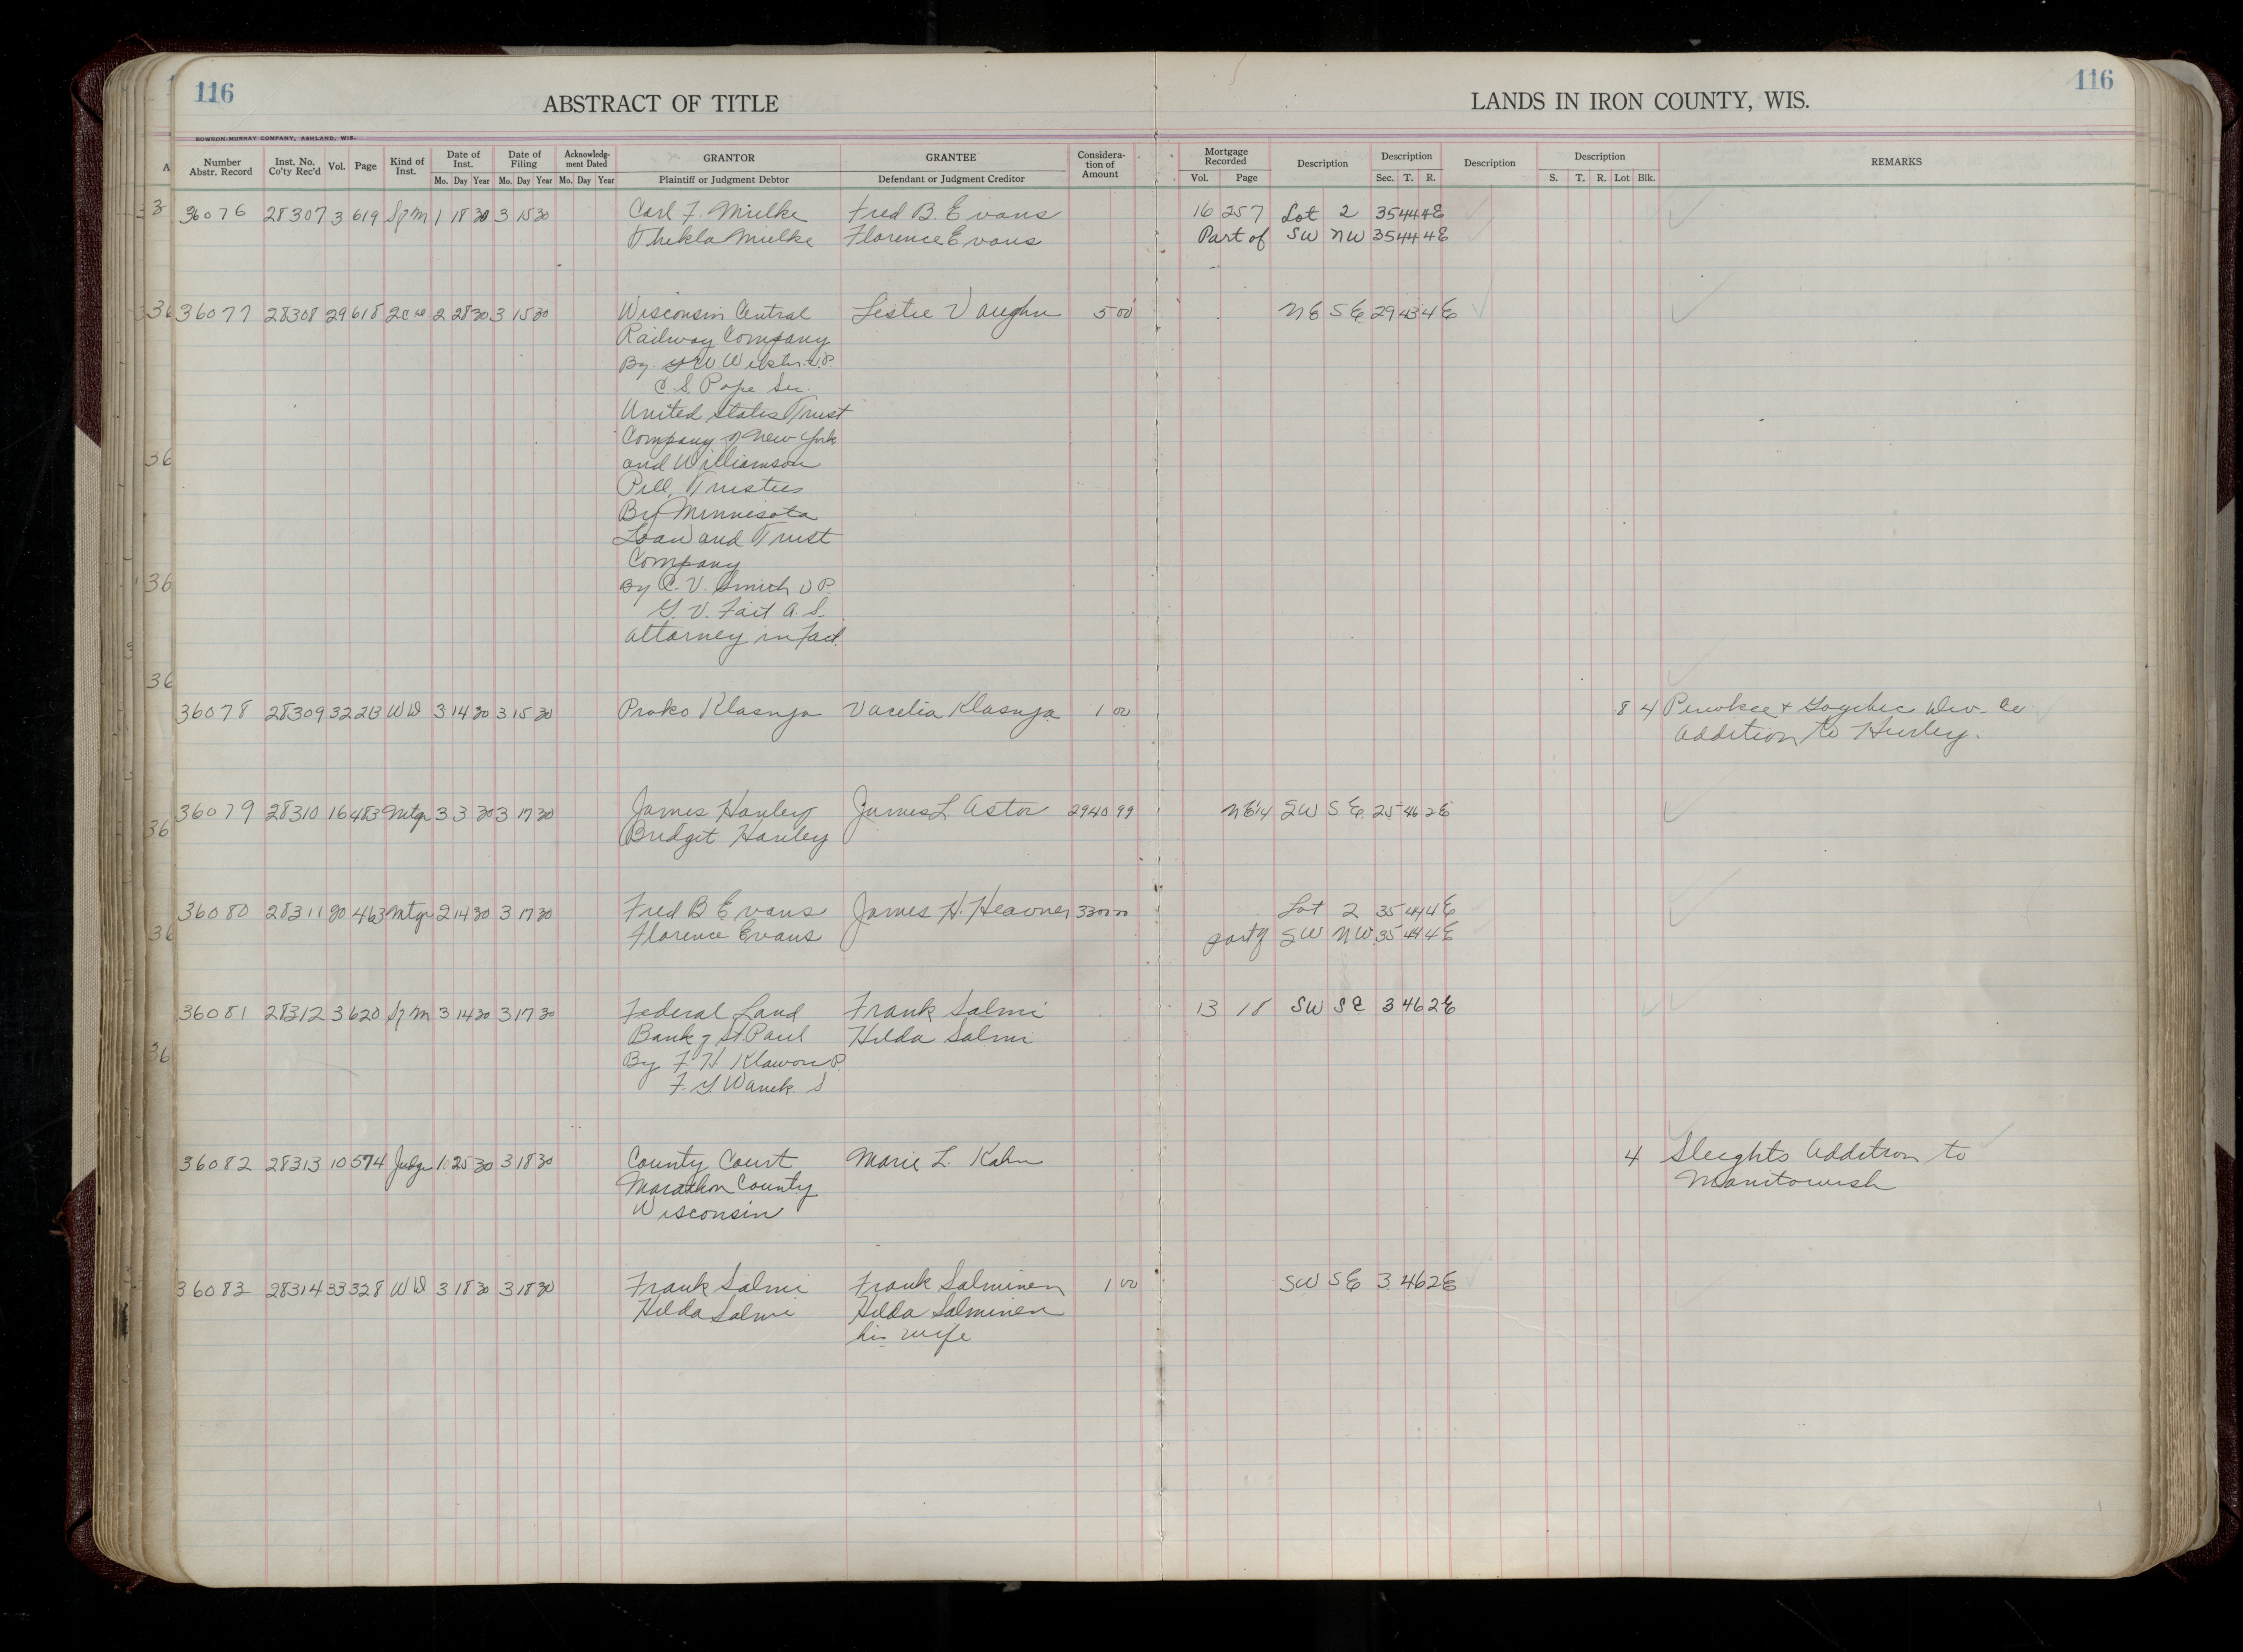 116
116
ABSTRACT OF TITLE
LANDS IN IRON COUNTY, WIS.
BOWRON-MURRAY COMPANY, ASHLAND, WIS.
Number Abstr. Record Inst. No. Co'ty Rec'd Vol. Page Kind of Inst. Date of Inst. Date of Filing Acknowledg-ment Dated GRANTOR GRANTEE Considera-tion of Amount Mortgage Recorded Description Description Description Description REMARKS
Mo. Day Year Mo. Day Year Mo. Day Year Plaintiff or Judgment Debtor Defendant or Judgment Creditor Vol. Page Sec. T. R. S. T. R. Lot Blk.
36076 28307 3 619 Sq M 1 18 30 3 15 30 Carl F. Mielke Fred B. Evans 16 257 Lot 2 35 44 4E
Thekla Mielke Florence Evans Part of SW NW 35 44 4E
36077 28308 29 618 2 28 30 3 15 30 Wisconsin Central Leslie Vaughn 5 00 NE SE 29 43 4E
Railway Company
By W Webster V.P.
C. S. Pope Sec.
United States Trust
Company of New York
and Williamson
Pell, Trustees
By Minnesota
Loan and Trust
Company
By C. V. Smith V P.
G. V. Fait A. S.
Attorney in fact.
36078 28309 32 213 WD 3 14 30 3 15 30 Proko Klasnja Vacelia Klasnja 1 00 8 4 Penokee & Gogebic Dev. Co
Addition to Hurley.
36079 28310 16 483 Mtg 3 3 30 3 17 30 James Hanley James L Astor 2940 99 NE1/4 SW SE 25 46 2E
Bridget Hanley
36080 28311 20 463 Mtg 2 14 30 3 17 30 Fred B Evans James H. Heavner 3300 00 Lot 2 35 44 4E
Florence Evans part of SW NW 35 44 4E
36081 28312 3 620 Sq M 3 14 30 3 17 30 Federal Land Frank Salmi 13 18 SW SE 3 46 2E
Bank of St. Paul Hilda Salmi
By F. H. Klawon P.
F. G. Wanek S
36082 28313 10 574 Judge 1 25 30 3 18 30 County Court Marie L. Kahn 4 Sleights Addition to
Marathon County Manitowish
Wisconsin
36083 28314 33 328 WD 3 18 30 3 18 30 Frank Salmi Frank Salminen 1 00 SW SE 3 46 2E
Hilda Salmi Hilda Salminen
his wife